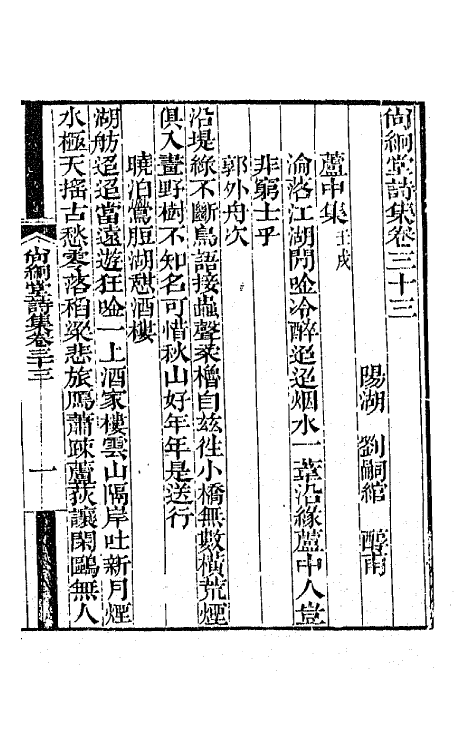 尙絅堂詩集卷三十三
陽湖 劉嗣綰 醇甫
蘆中集壬戌
淪落江湖閒唫冷醉迢迢烟水一葦沿緣蘆中人豈
非窮士乎
郭外舟次
沿堤綠不斷鳥語接蟲聲菜櫓自兹徃小橋無數橫荒煙
俱入畫野樹不知名可惜秋山好年年是送行
曉泊鶯脰湖憇酒樓
湖舫迢迢當遠遊狂唫一上酒家樓雲山隔岸吐新月煙
水極天搖古愁零落稻粱悲旅鴈蕭疎蘆荻讓閑鷗無人
尙絅堂詩集卷三十三 一